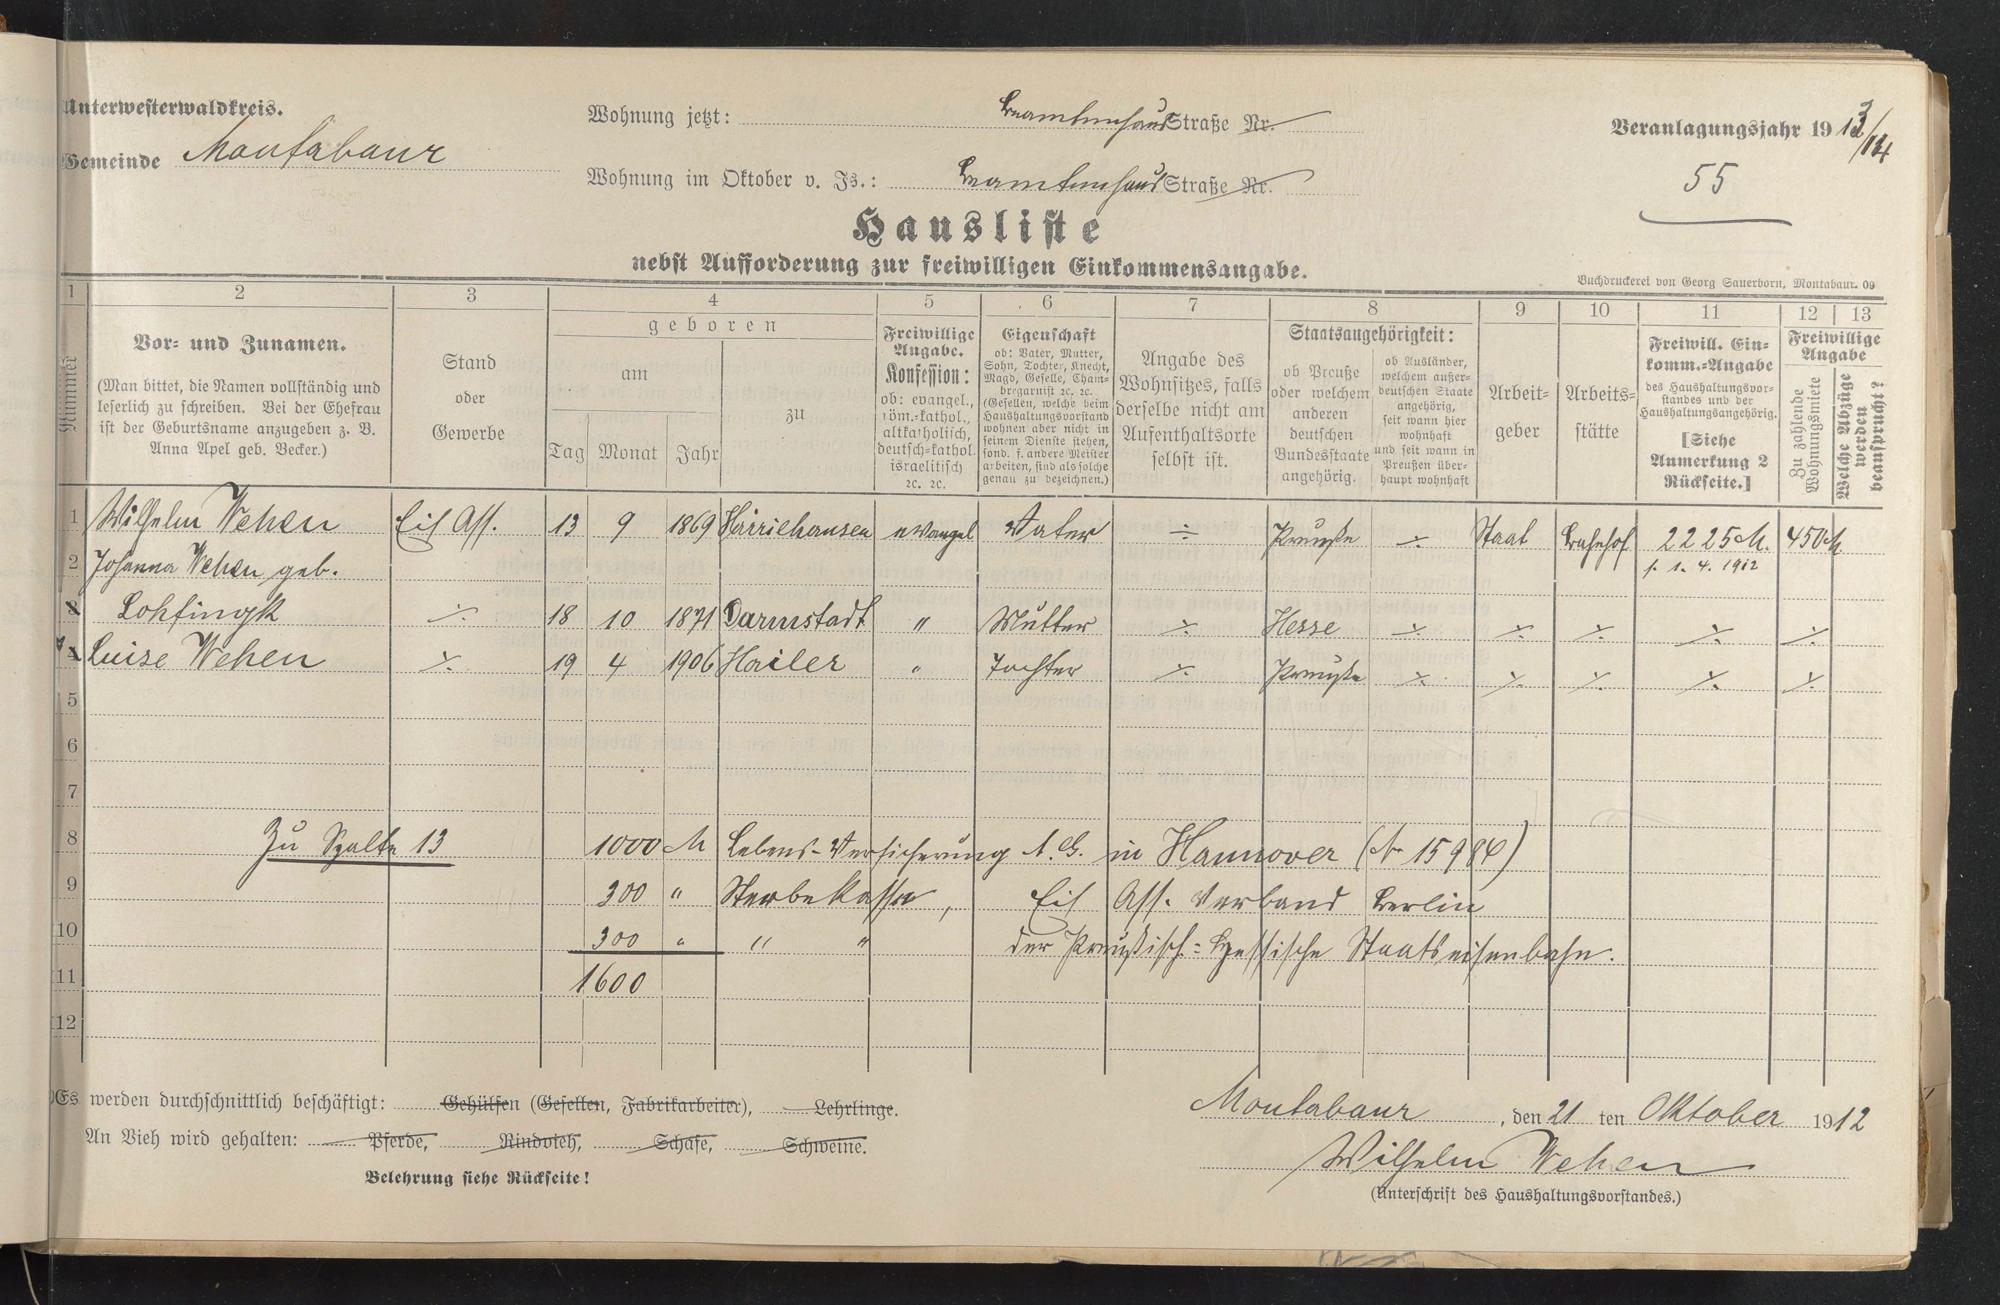 Unterwesterwaldkreis.
Gemeinde Montabaur
Wohnung jetzt: Beamtenhaus Straße Nr.
Wohnung im Oktober v. Js.: Beamtenhaus Straße Nr.
Veranlagungsjahr 1913/14
55
Hausliste
nebst Aufforderung zur freiwilligen Einkommensangabe.
Buchdruckerei von Georg Sauerborn, Montabaur. 09
1 2 3 4 5 6 7 8 9 10 11 12 13
Nummer
Vor- und Zunamen.
(Man bittet, die Namen vollständig und
leserlich zu schreiben. Bei der Ehefrau
ist der Geburtsname anzugeben z. B.
Anna Apel geb. Becker.)
Stand
oder
Gewerbe
geboren
am
Tag Monat Jahr
zu
Freiwillige
Angabe.
Konfession:
ob: evangel.,
röm.-kathol.,
altkatholisch,
deutsch-kathol.
israelitisch
2c. 2c.
Eigenschaft
ob: Vater, Mutter,
Sohn, Tochter, Knecht,
Magd, Geselle, Cham-
bregarnist 2c. 2c.
(Gesellen, welche beim
Haushaltungsvorstand
wohnen aber nicht in
seinem Dienste stehen,
sond. f. andere Meister
arbeiten, sind als solche
genau zu bezeichnen.)
Angabe des
Wohnsitzes, falls
derselbe nicht am
Aufenthaltsorte
selbst ist.
Staatsangehörigkeit:
ob Preuße
oder welchem
anderen
deutschen
Bundesstaate
angehörig.
ob Ausländer,
welchem außer-
deutschen Staate
angehörig,
seit wann hier
wohnhaft
und seit wann in
Preußen über-
haupt wohnhaft
Arbeit-
geber
Arbeits-
stätte
Freiwill. Ein-
komm.-Angabe
des Haushaltungsvor-
standes und der
Haushaltungsangehörig.
[Siehe
Anmerkung 2
Rückseite.]
Freiwillige
Angabe
Zu zahlende
Wohnungsmiete
Welche Abzüge
werden
beansprucht?
1 Wilhelm Wehen Eis Ass. 13 9 1869 Harriehausen evangel Vater ÷ Preuße ÷ Staat Bahnhof 2225 M. 450 M
f. 1. 4. 1912
2 Johanna Wehen geb.
3 Lohfingk ÷ 18 10 1871 Darmstadt " Mutter ÷ Hesse ÷ ÷ ÷ ÷ ÷
4 Luise Wehen ÷ 19 4 1906 Hailer " Tochter ÷ Preuße ÷ ÷ ÷ ÷ ÷
5
6
7
8 Zu Spalte 13 1000 M Lebens-Versicherung A. G. in Hannover (No 15984)
9 300 " Sterbekasse, Eis Ass. Verband Berlin
10 300 " " " der Preußisch-Hessische Staatseisenbahn.
11 1600
12
Es werden durchschnittlich beschäftigt: Gehülfen (Gesellen, Fabrikarbeiter), Lehrlinge.
An Vieh wird gehalten: Pferde, Rindvieh, Schafe, Schweine.
Belehrung siehe Rückseite!
Montabaur, den 21 ten Oktober 1912
Wilhelm Wehen
(Unterschrift des Haushaltungsvorstandes.)